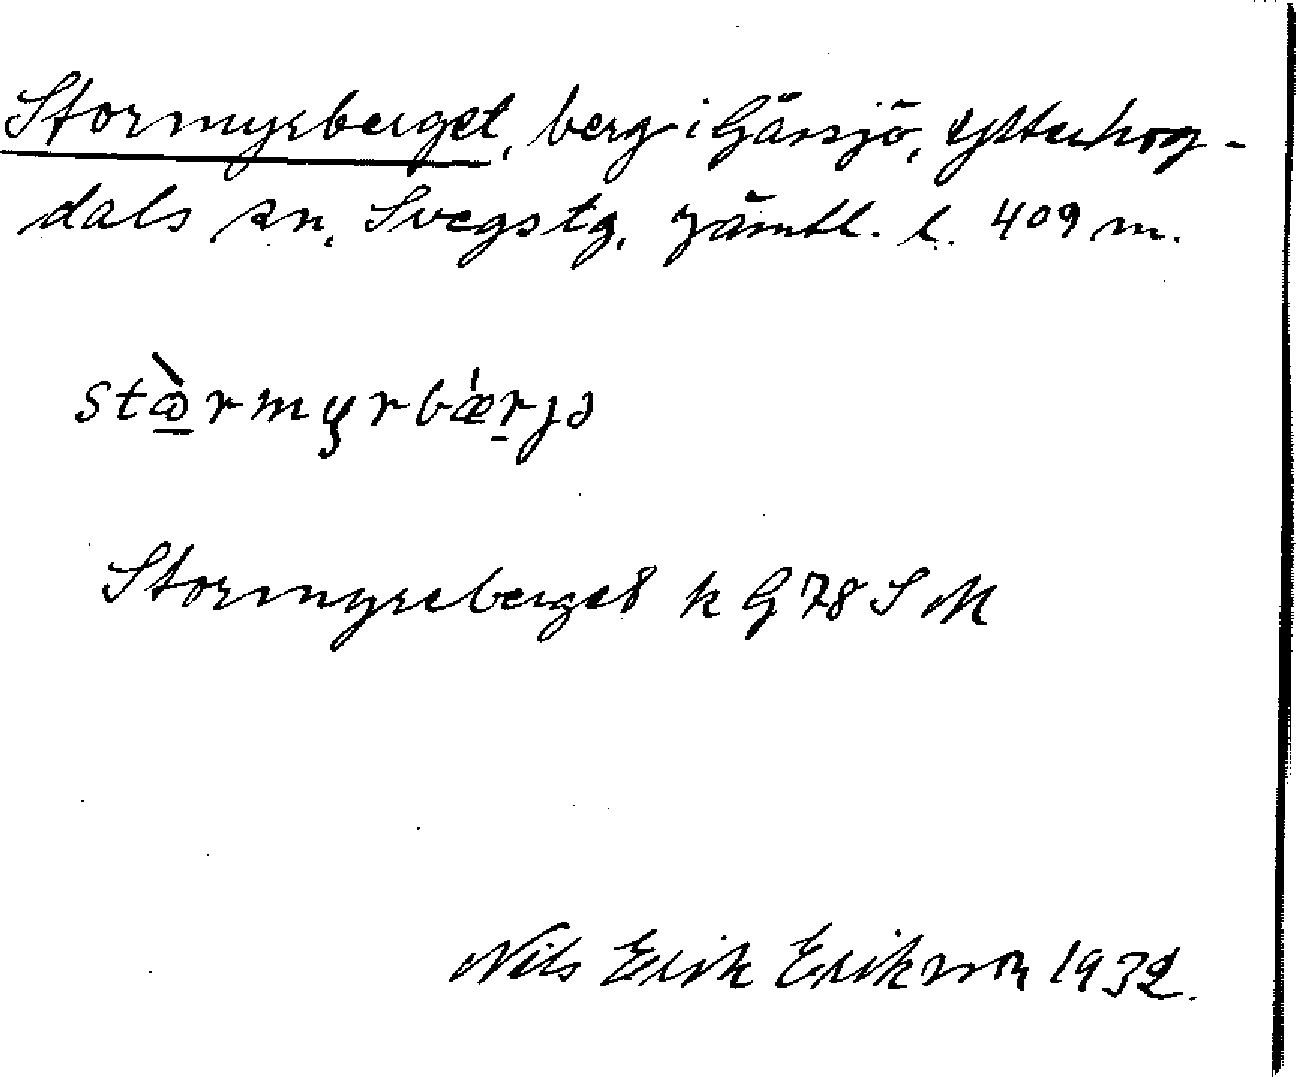 Stormyrberget, berg i Gårsjö, Ytterhog-
dals sn, Svegs tg, Jämtl. l. 409 m.
stɷ̀rmyrbǽrjə
Stormyreberget k G 78 S M
Nils Erik Erikson 1932.